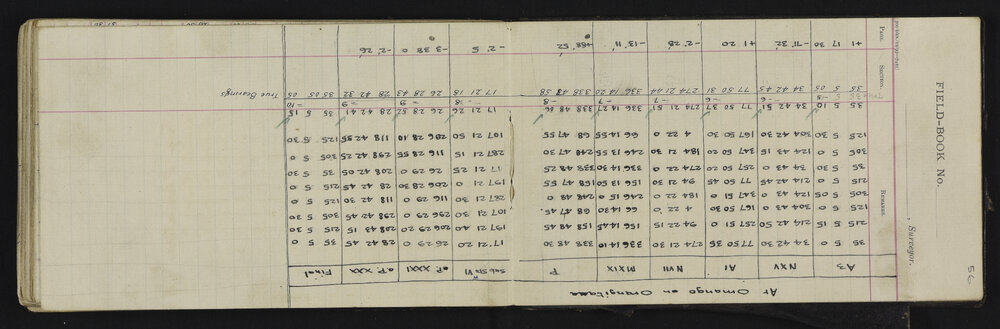 FIELD-BOOK No.
Surveyor.
56
Page. Section. Remarks.
At Omango en Orangitawa
A3 N XV A1 N VII M XIX P Sub Stn VI aP. XXXI aP. XXX Final
35 5 0 34 42 30 77 50 35 274 21 30 336 14 10 338 48 30 17 21 20 26 29 0 28 42 45 35 5 0
215 5 15 214 42 50 257 51 0 94 22 15 156 14 45 158 48 45 197 21 40 206 29 20 208 43 15 215 5 30
125 5 0 304 43 0 167 50 30 4 22 0 66 14 30 68 47 45 107 21 30 296 29 0 298 42 45 305 5 30
305 5 05 124 43 0 347 51 0 184 22 0 246 15 0 248 48 0 287 21 30 116 29 0 118 42 30 125 5 0
215 5 0 214 42 45 77 50 45 94 21 30 156 13 50 68 47 55 197 21 0 206 28 30 28 42 45 215 5 0
35 5 30 34 43 0 257 50 20 274 22 0 336 14 30 338 48 25 17 21 25 26 29 0 208 42 05 35 5 30
305 5 0 124 43 15 347 50 20 184 21 30 246 13 55 248 47 30 287 21 15 116 28 55 298 42 25 305 5 0
125 5 30 304 42 30 167 50 30 4 22 0 66 14 55 68 47 55 107 21 50 296 28 10 118 42 55 125 5 30
35 5 10 34 42 51 77 50 37 274 21 51 336 14 27 338 48 17 21 26 26 28 52 28 42 41 35 5 15
-6 -6 -7 -7 -8 -8 -9 -9 -10
35 5 05 34 42 45 77 50 31 274 21 44 336 14 20 338 48 38 17 21 18 26 28 43 28 42 32 35 05 05 True Bearings
+1 17 30 -11° 32' +1 20 -2° 28' -13° 11' +88° 52' -2° 5' -3 38 0 -2° 26'